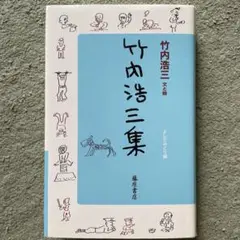 竹内浩三
文と絵
竹内浩三集
藤原書店